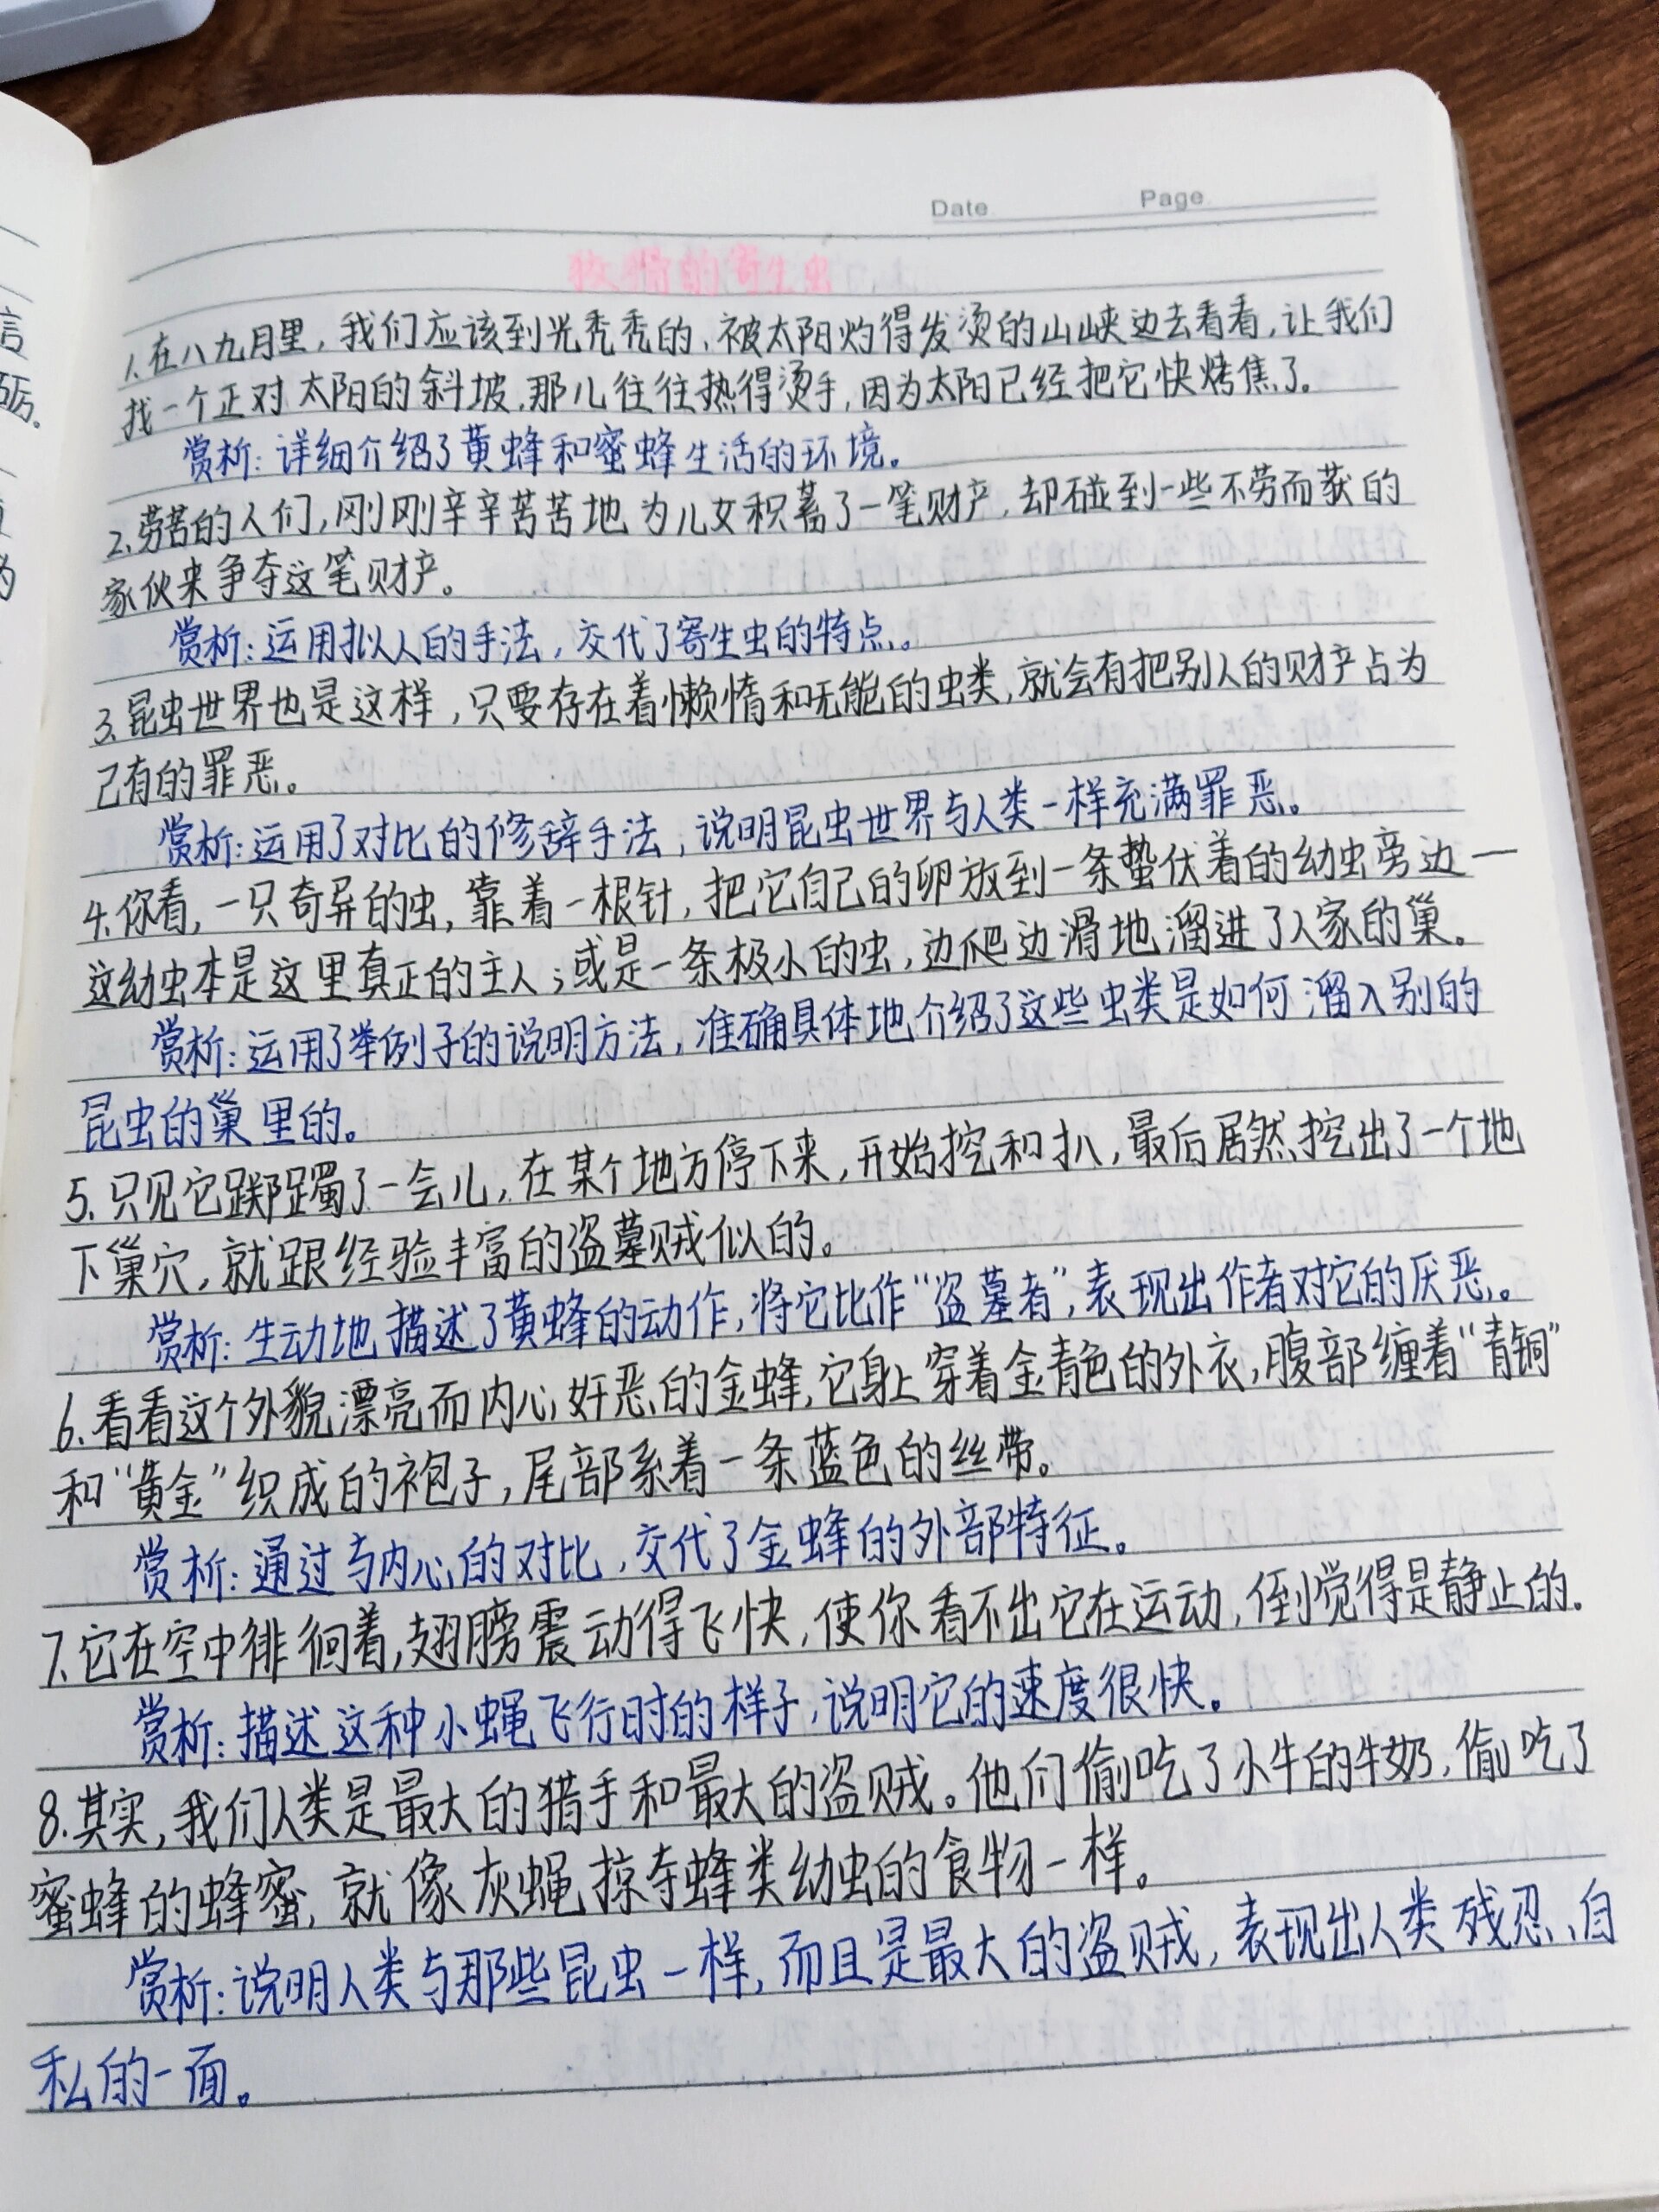 Date. Page.
狡猾的寄生虫
1.在八九月里，我们应该到光秃秃的、被太阳灼得发烫的山峡边去看看，让我们
找一个正对太阳的斜坡，那儿往往热得烫手，因为太阳已经把它快烤焦了。
赏析：详细介绍了黄蜂和蜜蜂生活的环境。
2.劳苦的人们，刚刚辛辛苦苦地为儿女积蓄了一笔财产，却碰到一些不劳而获的
家伙来争夺这笔财产。
赏析：运用拟人的手法，交代了寄生虫的特点。
3.昆虫世界也是这样，只要存在着懒惰和无能的虫类，就会有把别人的财产占为
己有的罪恶。
赏析：运用了对比的修辞手法，说明昆虫世界与人类一样充满罪恶。
4.你看，一只奇异的虫，靠着一根针，把它自己的卵放到一条蛰伏着的幼虫旁边—
这幼虫本是这里真正的主人；或是一条极小的虫，边爬边滑地溜进了人家的巢。
赏析：运用了举例子的说明方法，准确具体地介绍了这些虫类是如何溜入别的
昆虫的巢里的。
5.只见它踯躅了一会儿，在某个地方停下来，开始挖和扒，最后居然挖出了一个地
下巢穴，就跟经验丰富的盗墓贼似的。
赏析：生动地描述了黄蜂的动作，将它比作“盗墓者”，表现出作者对它的厌恶。
6.看看这个外貌漂亮而内心奸恶的金蜂，它身上穿着金青色的外衣，腹部缠着“青铜”
和“黄金”织成的袍子，尾部系着一条蓝色的丝带。
赏析：通过与内心的对比，交代了金蜂的外部特征。
7.它在空中徘徊着，翅膀震动得飞快，使你看不出它在运动，倒觉得是静止的。
赏析：描述这种小蝇飞行时的样子，说明它的速度很快。
8.其实，我们人类是最大的猎手和最大的盗贼。他们偷吃了小牛的牛奶，偷吃了
蜜蜂的蜂蜜，就像灰蝇掠夺蜂类幼虫的食物一样。
赏析：说明人类与那些昆虫一样，而且是最大的盗贼，表现出人类残忍、自
私的一面。